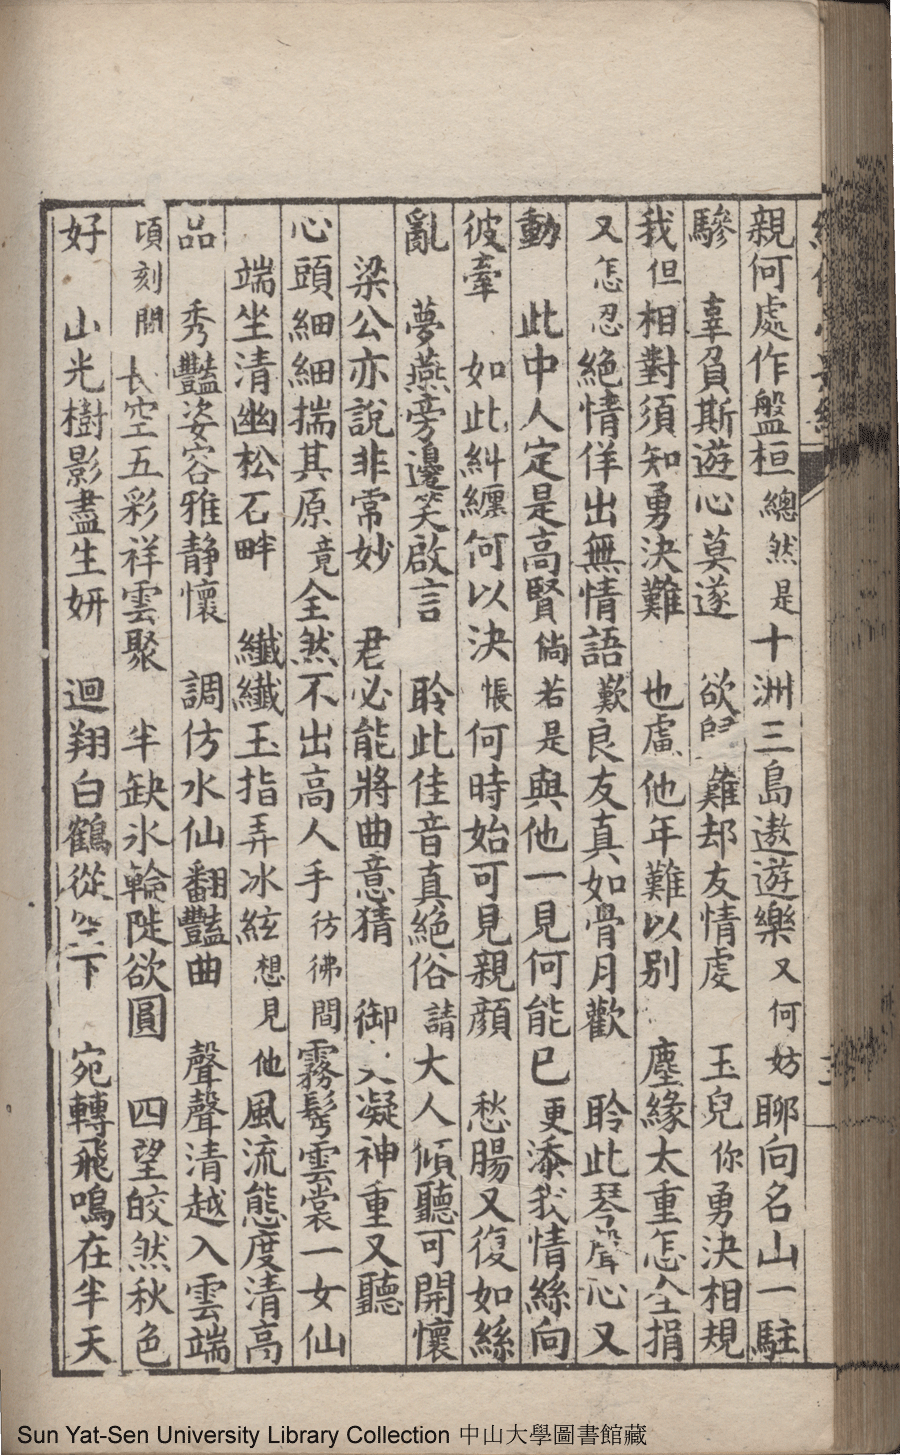 親何處作盤桓 總然是十洲三島遨遊樂 又何妨聊向名山一駐
驂 辜負斯遊心莫遂 欲 難却友情虔 玉兒你勇決相規
我但相對須知勇決難 也慮他年難以別 塵緣太重怎全捐
又怎忍絕情佯出無情語 歎良友真如骨月歡 聆此琴聲心又
動 此中人定是高賢 倘若是與他一見何能已 更添我情絲向
彼牽 如此糾纏何以決 悵何時始可見親顏 愁腸又復如絲
亂 夢燕旁邊笑啟言 聆此佳音真絕俗 請大人傾聽可開懷
梁公亦說非常妙 君必能將曲意猜 御 凝神重又聽
心頭細細揣其原 竟全然不出高人手 彷彿間霧鬂雲裳一女仙
端坐清幽松石畔 纖纖玉指弄冰絃 想見他風流態度清高
品 秀豔姿容雅静懷 調仿水仙翻豔曲 聲聲清越入雲端
頃刻間長空五彩祥雲聚 半缺氷輪陡欲圓 四望皎然秋色
好 山光樹影盡生妍 迴翔白鶴從空下 宛轉飛鳴在半天
Sun Yat-Sen University Library Collection 中山大學圖書館藏